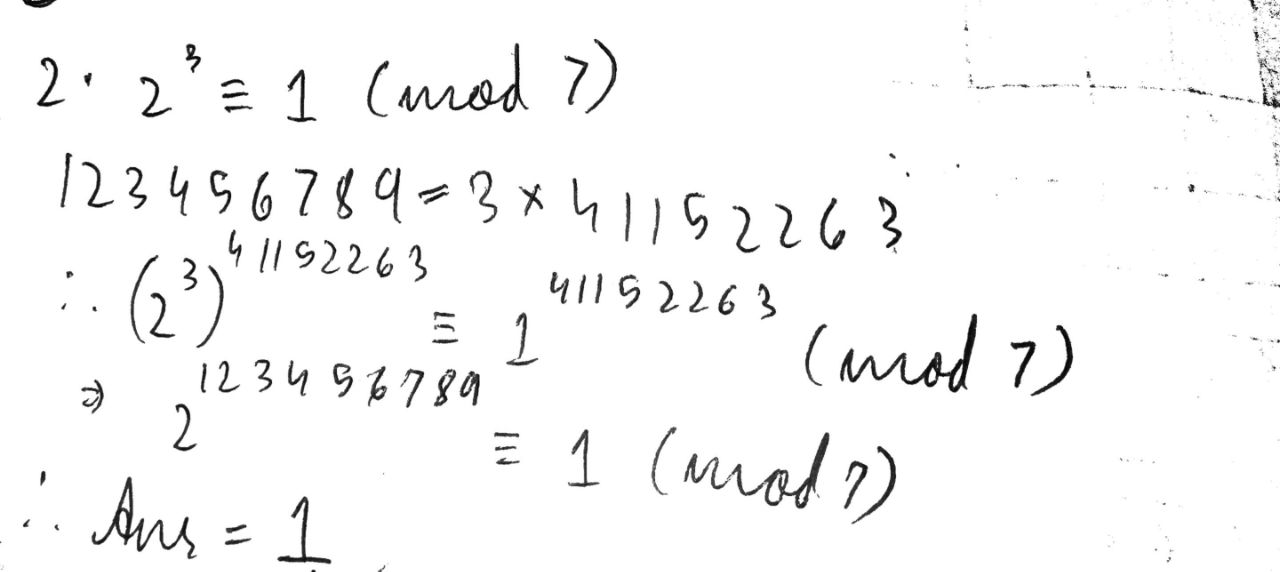 2. 2³ ≡ 1 (mod 7)
123456789 = 3 × 41152263
∴ (2³)^41152263 ≡ 1^41152263 (mod 7)
⇒ 2^123456789 ≡ 1 (mod 7)
∴ Ans = 1